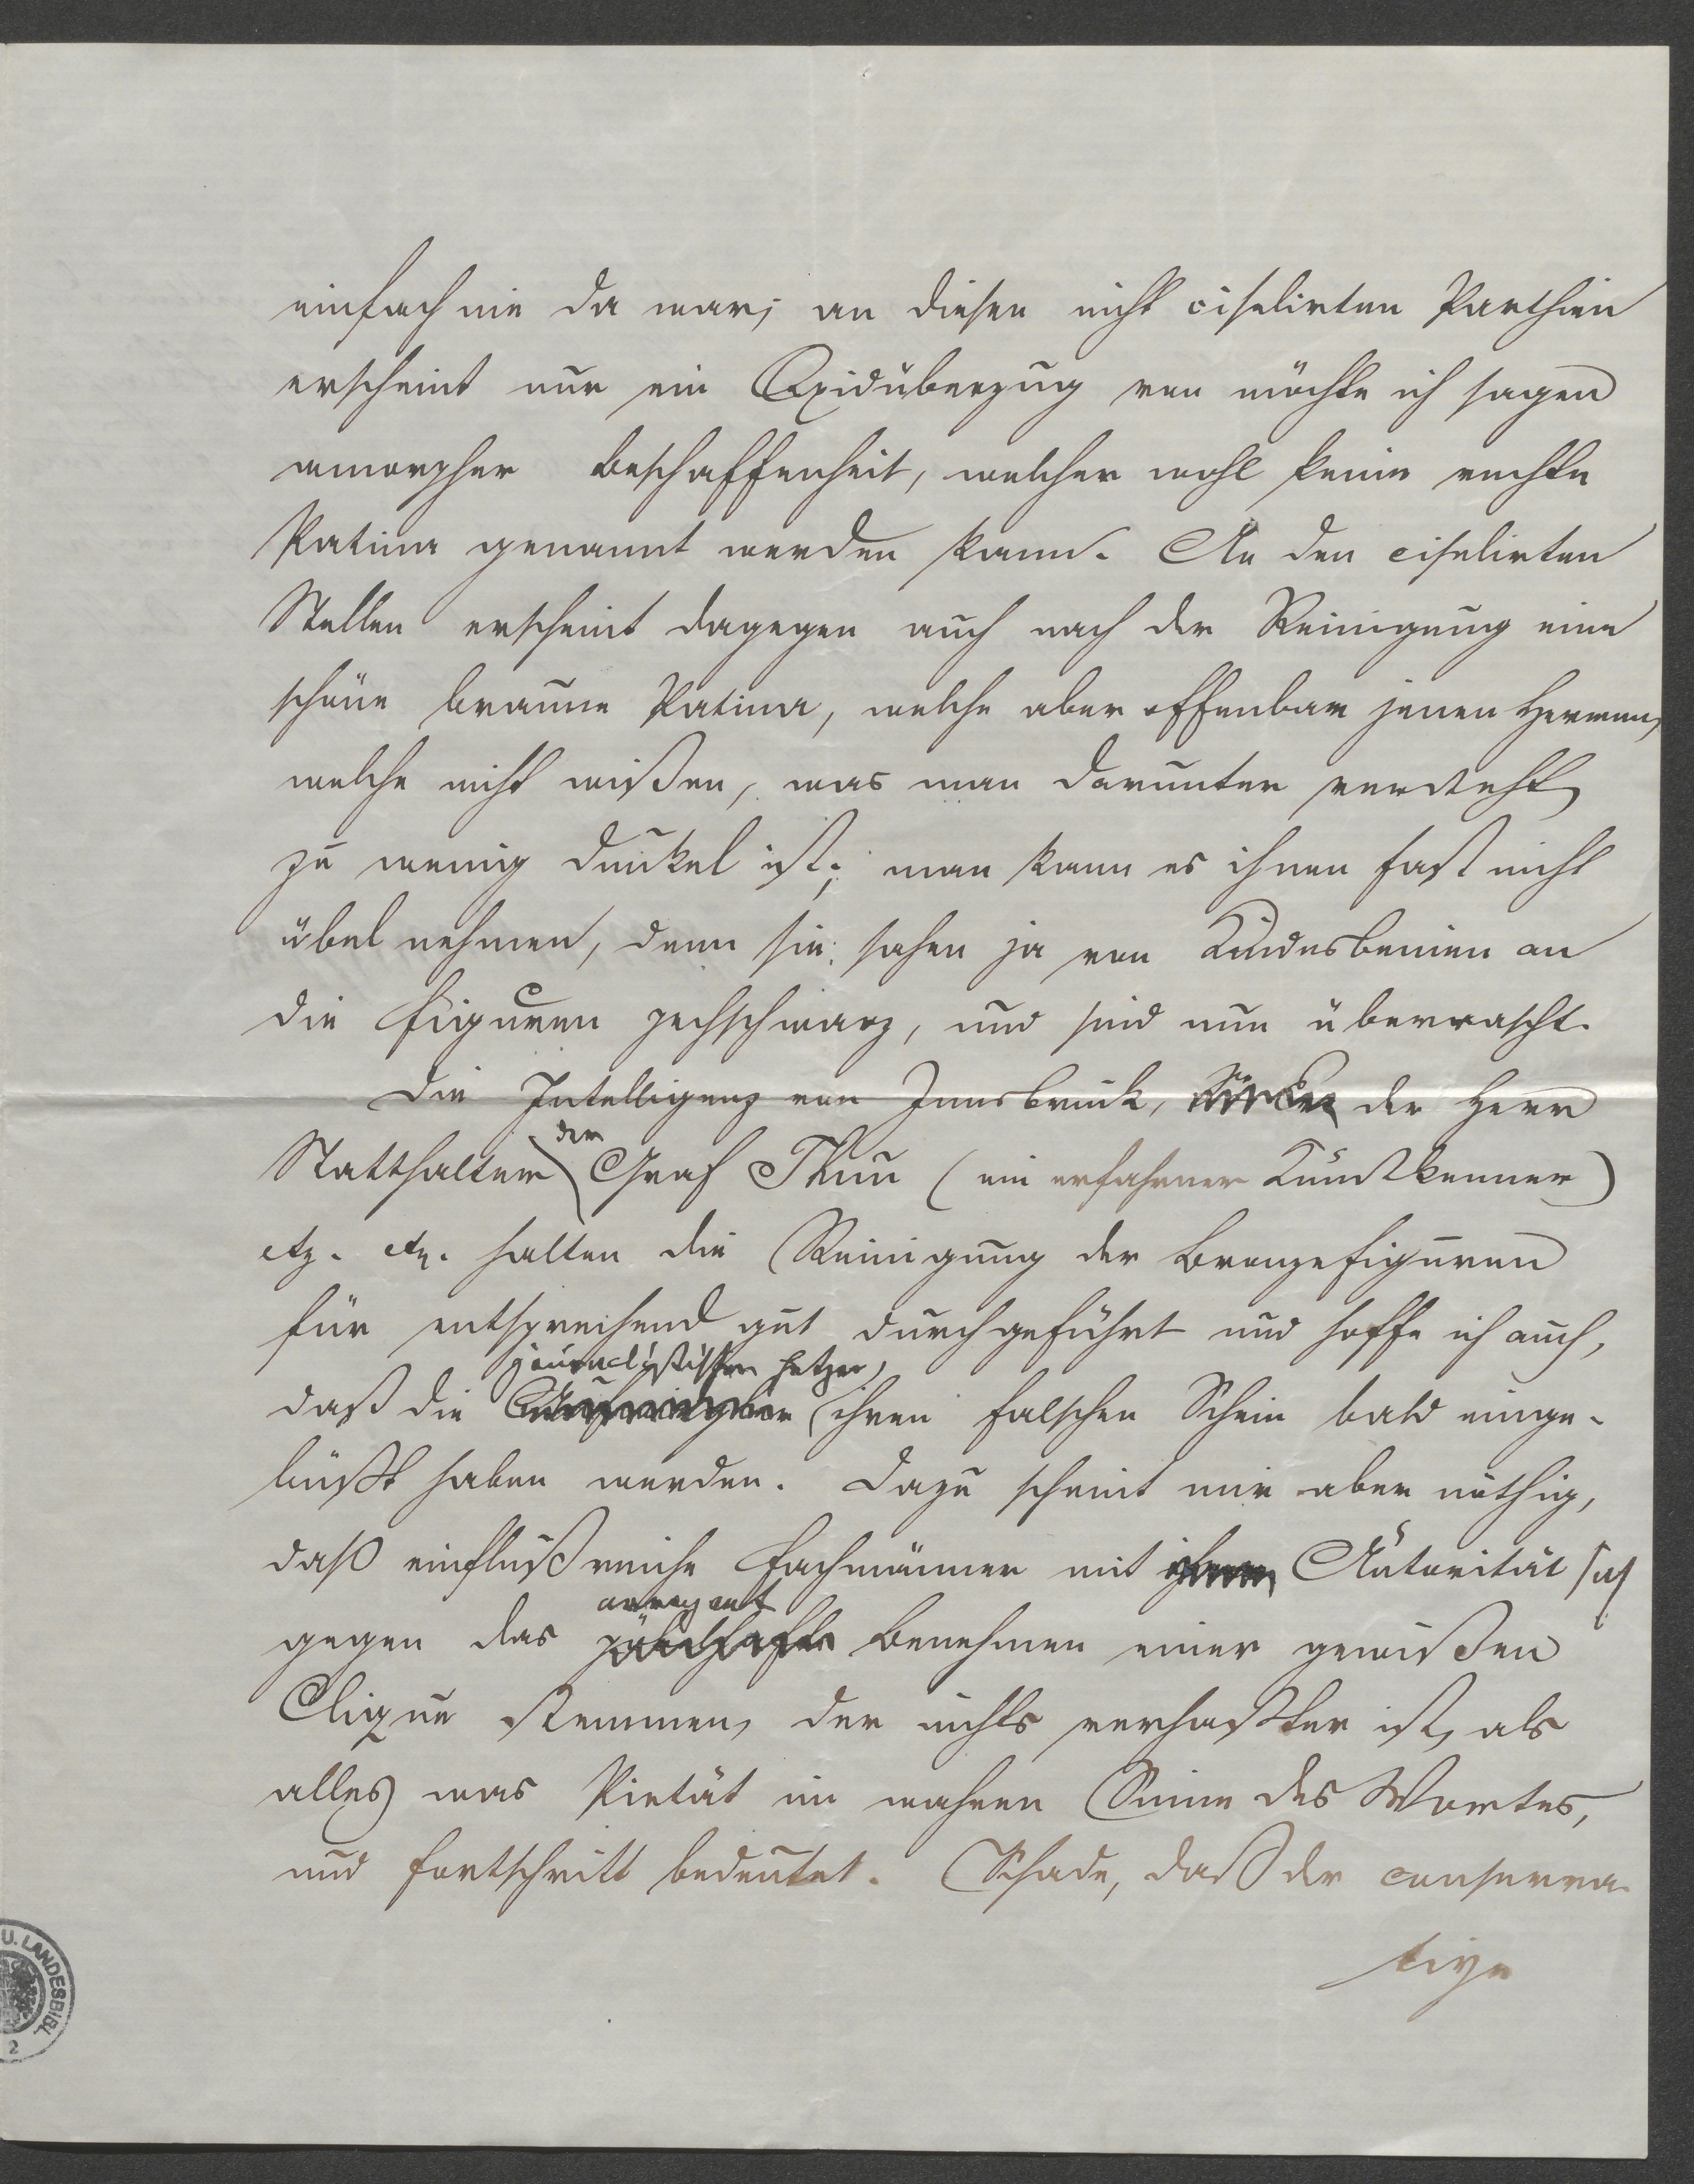 einfach nie da war; an diesen nicht ciselirten Parthien
erscheint nur ein Oxidüberzug von möchte ich sagen
amorpher Beschaffenheit, welcher wohl keine rechte
Patina genannt werden kann. An den ciselirten
Stellen erscheint dagegen auch nach der Reinigung eine
schöne braune Patina, welche aber offenbar jenen Herren,
welche nicht wißen, was man darunter versteht,
zu wenig dunkel ist; man kann es ihnen fast nicht
übel nehmen, denn sie sahen ja von Kindesbeinen an
die Figuren pechschwarz, und sind nun überrascht.
Die Intelligenz von Innsbruck, der Herr
der
Statthalter Graf Thun (ein erfahrner Kunstkenner)
etz. etz. halten die Reinigung der Bronzefiguren
für entsprechend gut durchgeführt und hoffe ich auch,
journalistischen Hetzer,
daß die ihren falschen Schein bald einge-
büßt haben werden. Dazu scheint mir aber nöthig,
daß einflußreiche Fachmänner mit ihrer Autorität sich
arrogante
gegen das Benehmen einer gewißen
Clique stemmen, der nichts verhaßter ist, als
alles was Pietät im wahren Sinne des Wortes,
und Fortschritt bedeutet. Schade, daß der conserva-
tive
U. LANDESBIBL
2